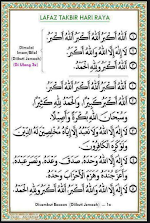 LAFAZ TAKBIR HARI RAYA
Dimulai
Imam/Bilal
(Diikuti Jamaah)
(Di Ulang 3x)
اَللهُ أَكْبَرُ اَللهُ أَكْبَرُ اَللهُ أَكْبَرُ
لَا إِلٰهَ إِلَّا اللهُ وَاللهُ أَكْبَرُ
اَللهُ أَكْبَرُ وَلِلّٰهِ الْحَمْدُ
اَللهُ أَكْبَرُ اَللهُ أَكْبَرُ اَللهُ أَكْبَرُ
اَللهُ أَكْبَرُ كَبِيْرًا وَالْحَمْدُ لِلّٰهِ كَثِيْرًا
وَسُبْحَانَ اللهِ بُكْرَةً وَأَصِيْلًا
لَا إِلٰهَ إِلَّا اللهُ وَلَا نَعْبُدُ إِلَّا إِيَّاهُ مُخْلِصِيْنَ لَهُ الدِّيْنَ
وَلَوْ كَرِهَ الْكَافِرُوْنَ
لَا إِلٰهَ إِلَّا اللهُ وَحْدَهُ صَدَقَ وَعْدَهُ وَنَصَرَ عَبْدَهُ
وَأَعَزَّ جُنْدَهُ وَهَزَمَ الْأَحْزَابَ وَحْدَهُ
لَا إِلٰهَ إِلَّا اللهُ وَاللهُ أَكْبَرُ اَللهُ أَكْبَرُ وَلِلّٰهِ الْحَمْدُ
(Diikuti Jamaah) ... 1x